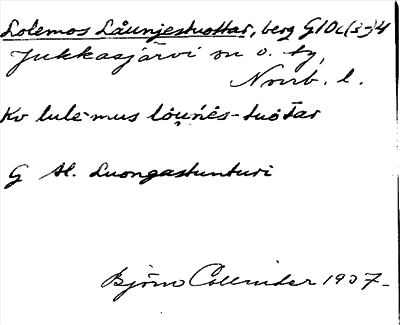 Lolemos Låunjestuottar, berg G10c(3-)4
Jukkasjärvi sn o. tg,
Norrb. l.
Kv lulemus låuńes-tuottar
G Al. Luongastunturi
Björn Collinder 1937-